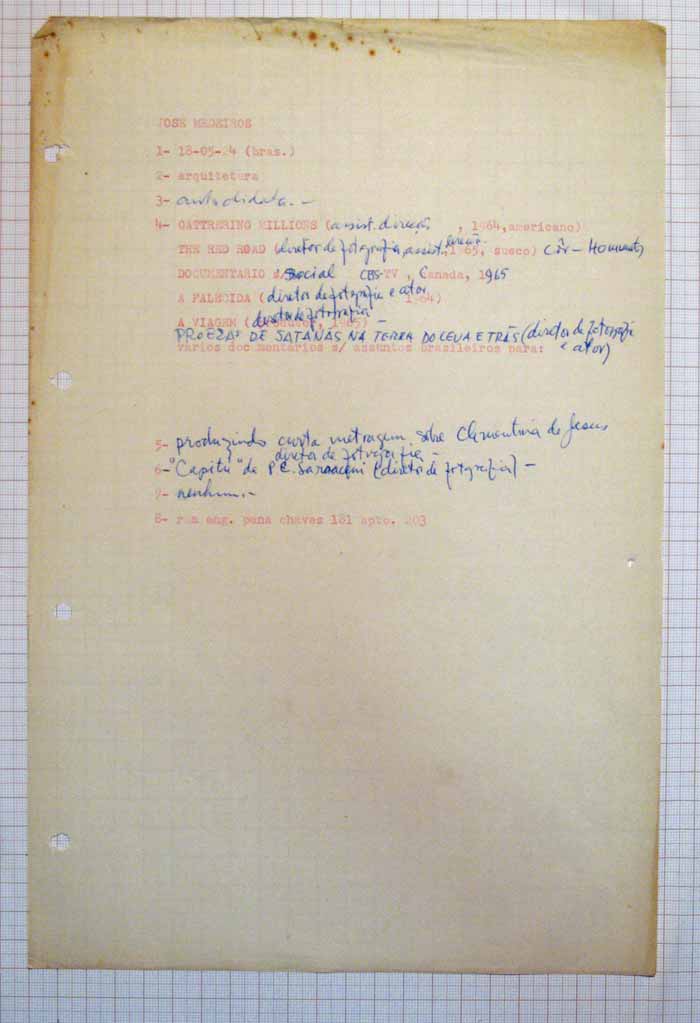 JOSE MEDEIROS
1- 18-05-24 (bras.)
2- arquitetura
3- autodidata. -
4- GATTRERING MILLIONS (assist. direção, 1964, americano)
THE RED ROAD (diretor de fotografia, assist. direção. 1965, sueco) Côr -
DOCUMENTARIO s/ Social CBS-TV, Canada, 1965
A FALECIDA (diretor de fotografia e ator 1964)
A VIAGEM (diretor de fotografia 1965) -
PROEZAS DE SATANÁS NA TERRA DO LEVA E TRÁS (diretor de fotografia e ator)
varios documentarios s/ assuntos brasileiros para:
5- produzindo curta metragem sôbre Clementina de Jesus
diretor de fotografia -
6- "Capitú" de P.C. Sarraceni (diretor de fotografia) -
7- nenhum. -
8- rua eng. pena chaves 181 apto. 203